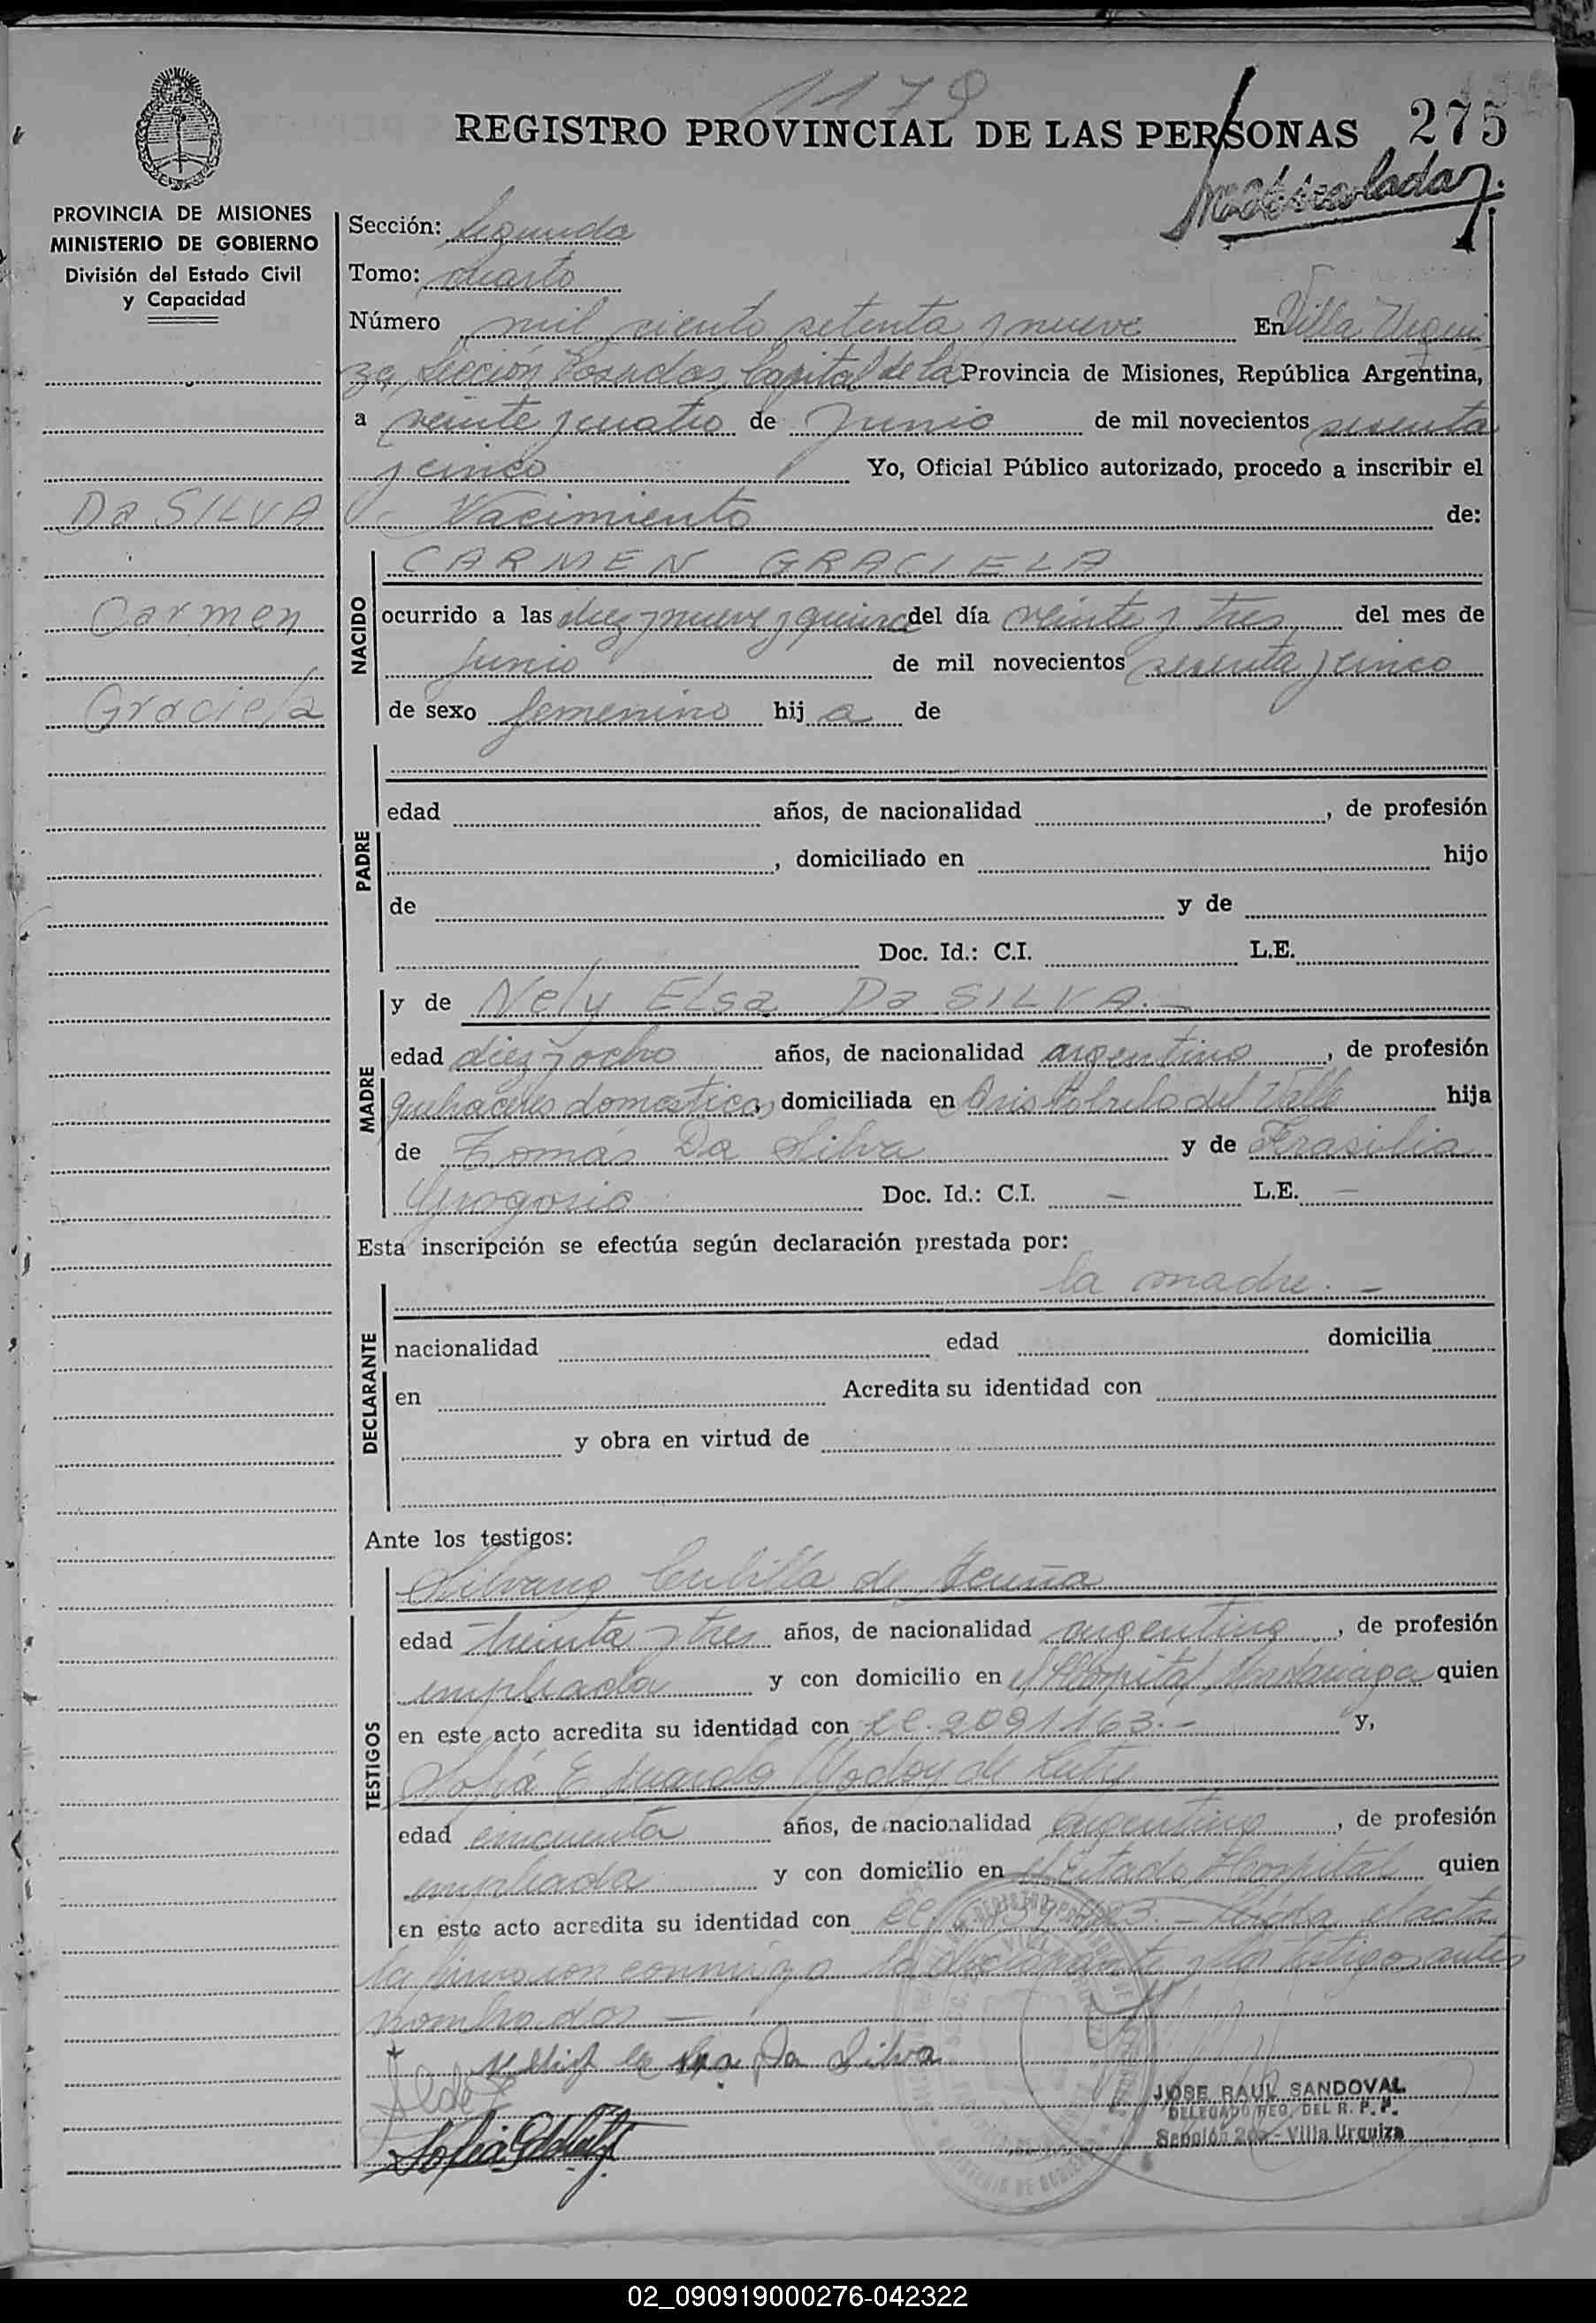 1179
REGISTRO PROVINCIAL DE LAS PERSONAS 275
PROVINCIA DE MISIONES
MINISTERIO DE GOBIERNO
División del Estado Civil
y Capacidad
Sección: Segunda
Tomo: Cuarto
Número mil ciento setenta y nueve En Villa Urqui
za, Sección Posadas, Capital de la Provincia de Misiones, República Argentina,
a veinte y cuatro de Junio de mil novecientos sesenta
y cinco Yo, Oficial Público autorizado, procedo a inscribir el
Da SILVA Nacimiento de:
CARMEN GRACIELA
Carmen
NACIDO
ocurrido a las diez y nueve y quince del día veinte y tres del mes de
Junio de mil novecientos sesenta y cinco
Graciela
de sexo femenino hij a de
PADRE
edad años, de nacionalidad , de profesión
, domiciliado en hijo
de y de
Doc. Id.: C.I. L.E.
MADRE
y de Nely Elsa Da SILVA.-
edad diez y ocho años, de nacionalidad argentina, de profesión
quehaceres domesticos, domiciliada en Aristobulo del Valle hija
de Tomás Da Silva y de
Doc. Id.: C.I. - L.E. -
Esta inscripción se efectúa según declaración prestada por:
la madre.-
DECLARANTE
nacionalidad edad domicilia
en Acredita su identidad con
y obra en virtud de
Ante los testigos:
Silvana Cubilla de Acuña
TESTIGOS
edad treinta y tres años, de nacionalidad argentina, de profesión
empleada y con domicilio en el Hospital Madariaga quien
en este acto acredita su identidad con LC. 2091163.- y,
Sofía Godoy de
edad cincuenta años, de nacionalidad argentina, de profesión
empleada y con domicilio en el citado Hospital quien
en este acto acredita su identidad con LC. Leída el acta
la firmaron conmigo la declarante y los testigos antes
nombrados -
Da Silva
JOSE RAUL SANDOVAL
DELEGADO REG. DEL R. P. P.
Sección 2da - Villa Urquiza
02_090919000276-042322